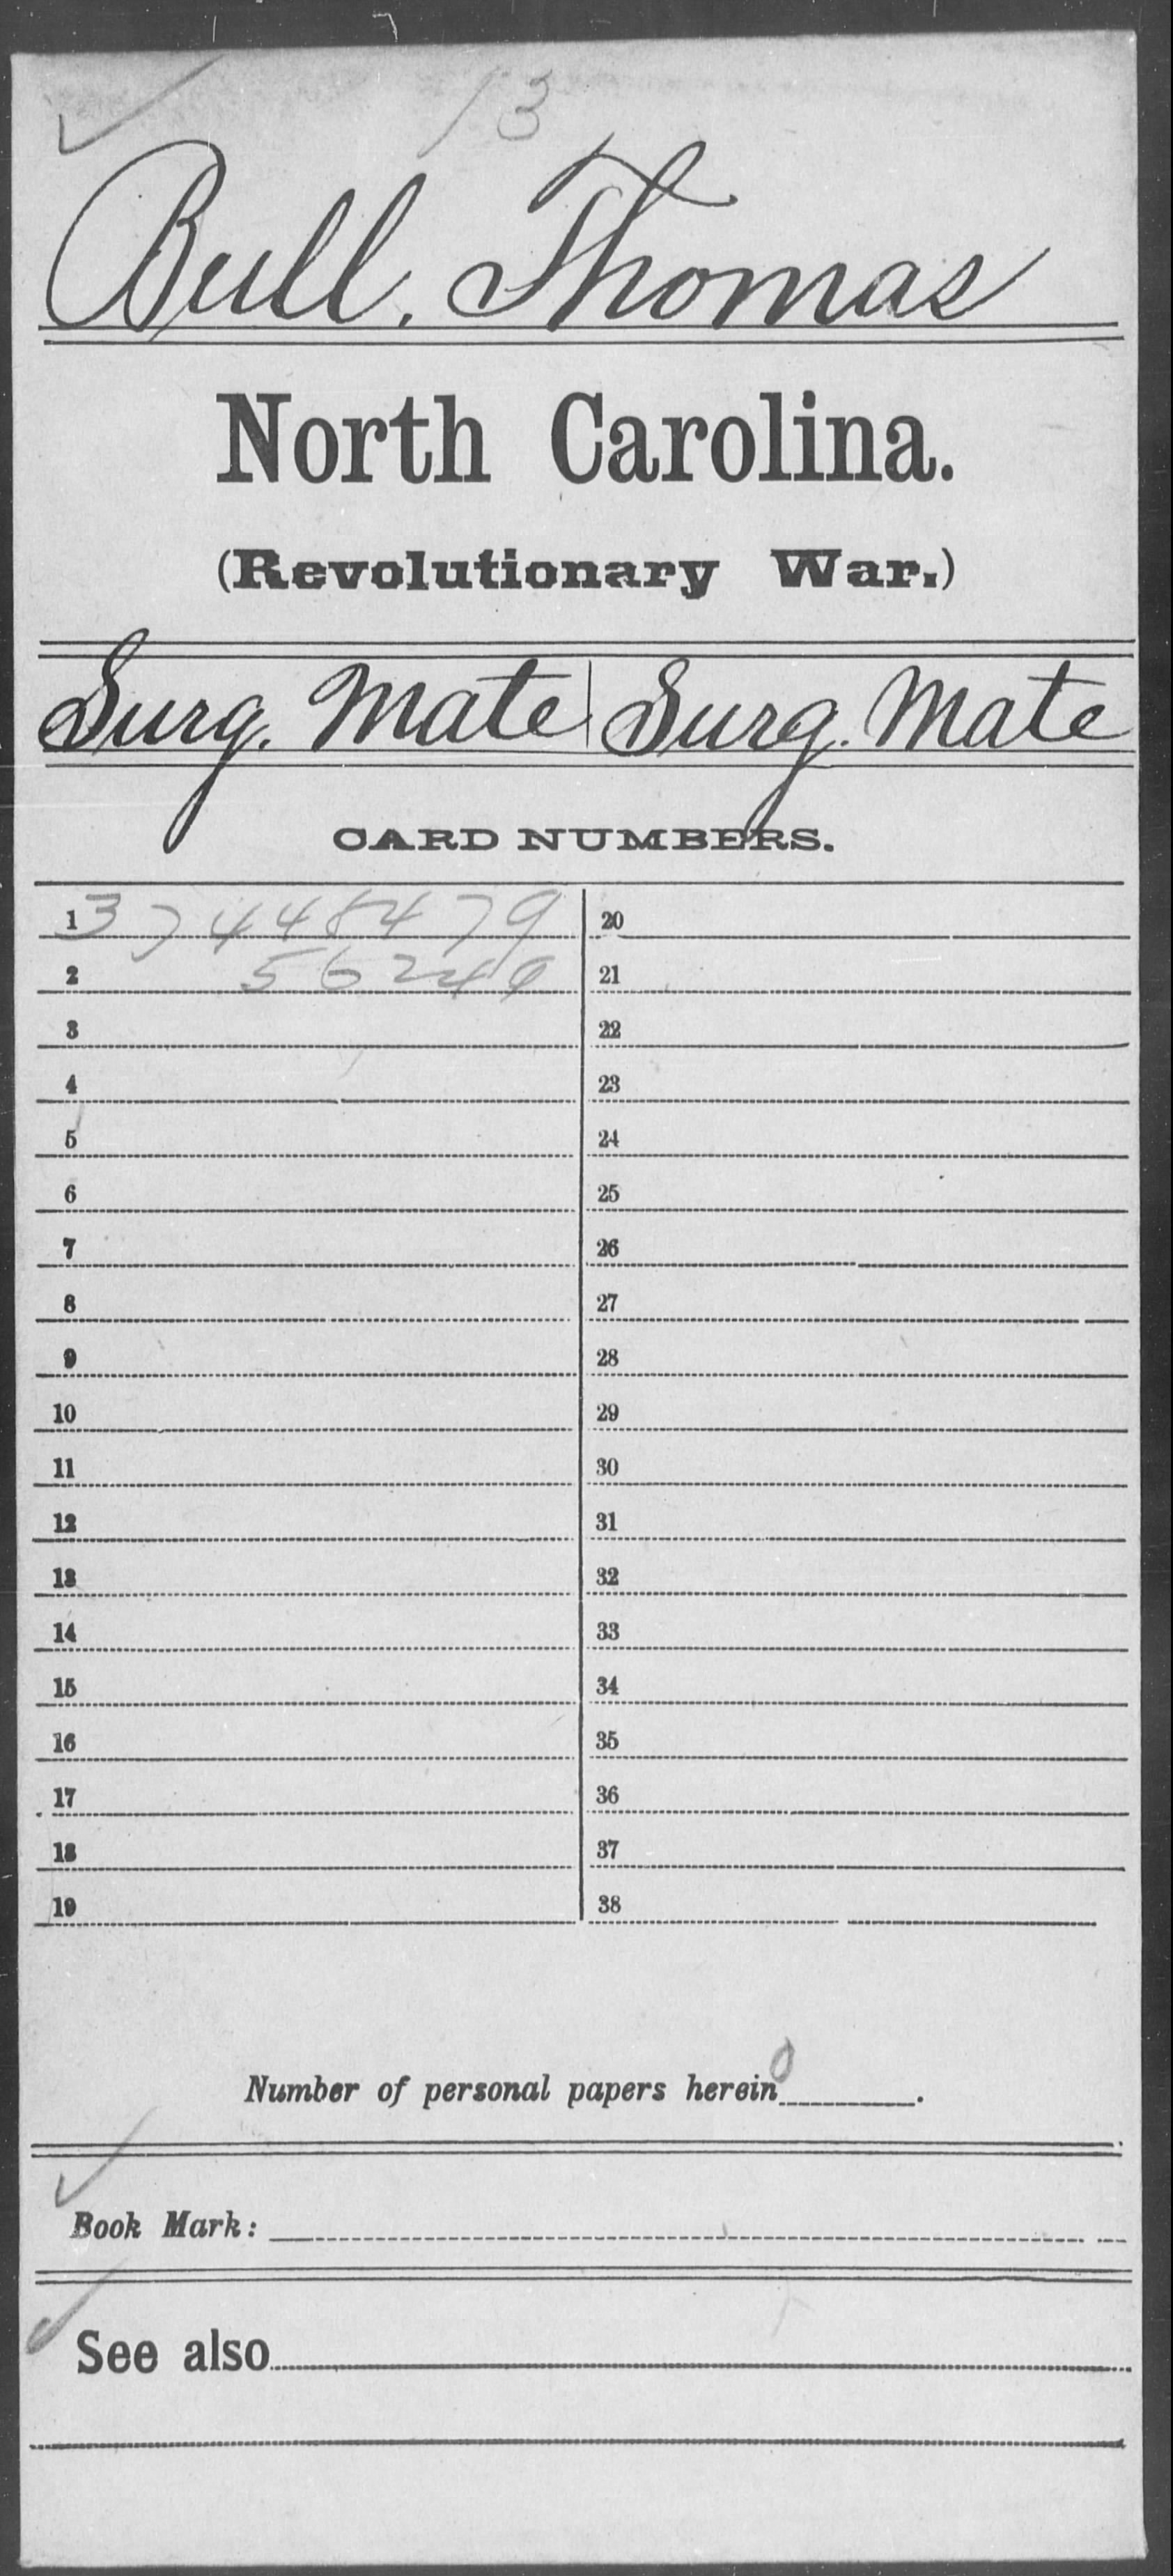 13
Bull, Thomas
North Carolina.
(Revolutionary War.)
Surg. Mate | Surg. Mate
CARD NUMBERS.
1 37448479 20
2 56249 21
3 22
4 23
5 24
6 25
7 26
8 27
9 28
10 29
11 30
12 31
13 32
14 33
15 34
16 35
17 36
18 37
19 38
Number of personal papers herein 0.
Book Mark:
See also